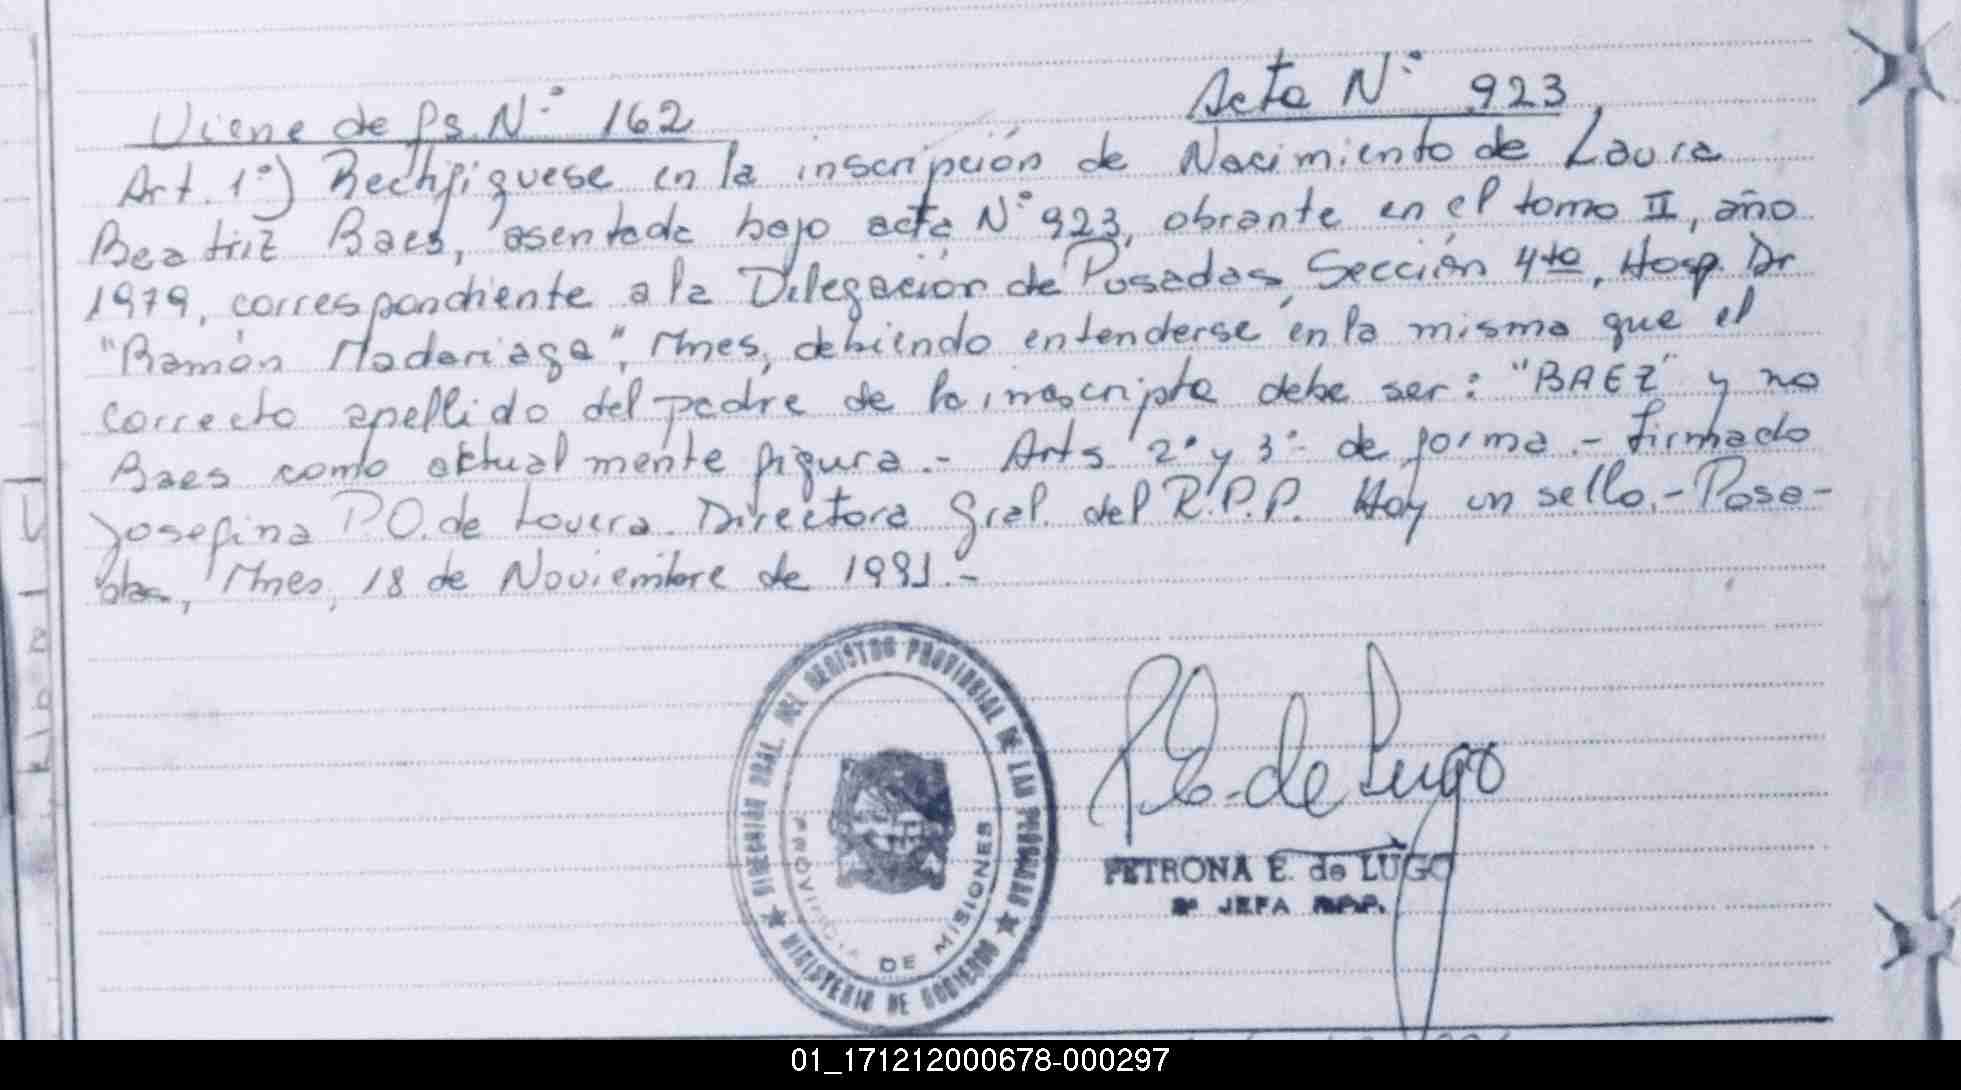 Viene de fs. N° 162
Acta N° 923
Art. 1°) Rectifíquese en la inscripción de Nacimiento de Laura
Beatriz Baes, asentada bajo acta N° 923, obrante en el tomo II, año
1979, correspondiente a la Delegación de Posadas, Sección 4ta, Hosp. Dr
"Ramón Madariaga", Mnes, debiendo entenderse en la misma que el
correcto apellido del padre de la inscripta debe ser: "BAEZ" y no
Baes como aktualmente figura.- Arts 2° y 3° de forma.- firmado
Josefina P.O. de Lovera. Directora Gral. del R.P.P. Hay un sello.- Posa-
das, Mnes, 18 de Noviembre de 1991.-
DIRECCION GRAL. DEL REGISTRO PROVINCIAL DE LAS PERSONAS
MINISTERIO DE GOBIERNO
PROVINCIA DE MISIONES
de Lugo
PETRONA E. de LUGO
JEFA R.P.P.
01_171212000678-000297